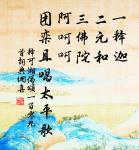 一释迦
二元和
三佛陀
阿呵呵
团栾且唱太平歌
释可湘偈颂一百零九
首词典網嘉